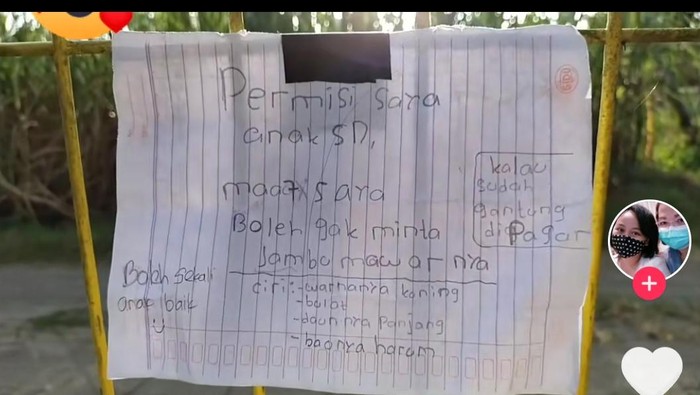 Permisi saya
anak SD,
maaf saya
Boleh gak minta
Jambu mawar nya
kalau
sudah
gantung
di Pagar
ciri:-warnanya koning
-bulat
-daun nya Panjang
-baonya harom
Boleh sekali
anak baik